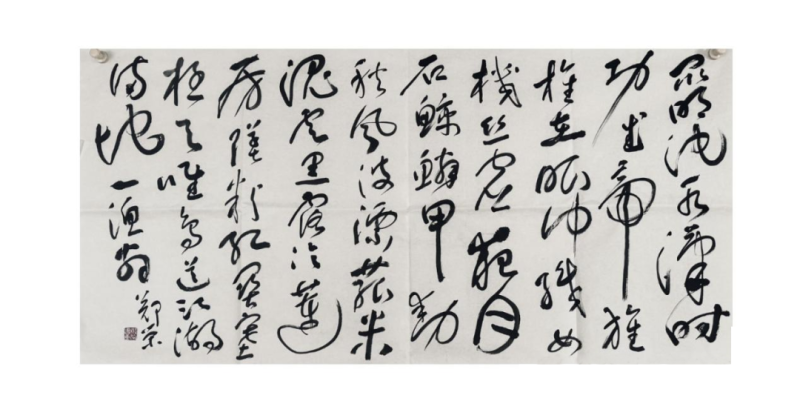 昆明池水漢时
功武帝旌
旗在眼中織女
機丝虚夜月
石鲸鳞甲動
秋风波漂菰米
沉云黑露冷蓮
房墜粉红関塞
極天唯鸟道江湖
满地一渔翁
鄭荣